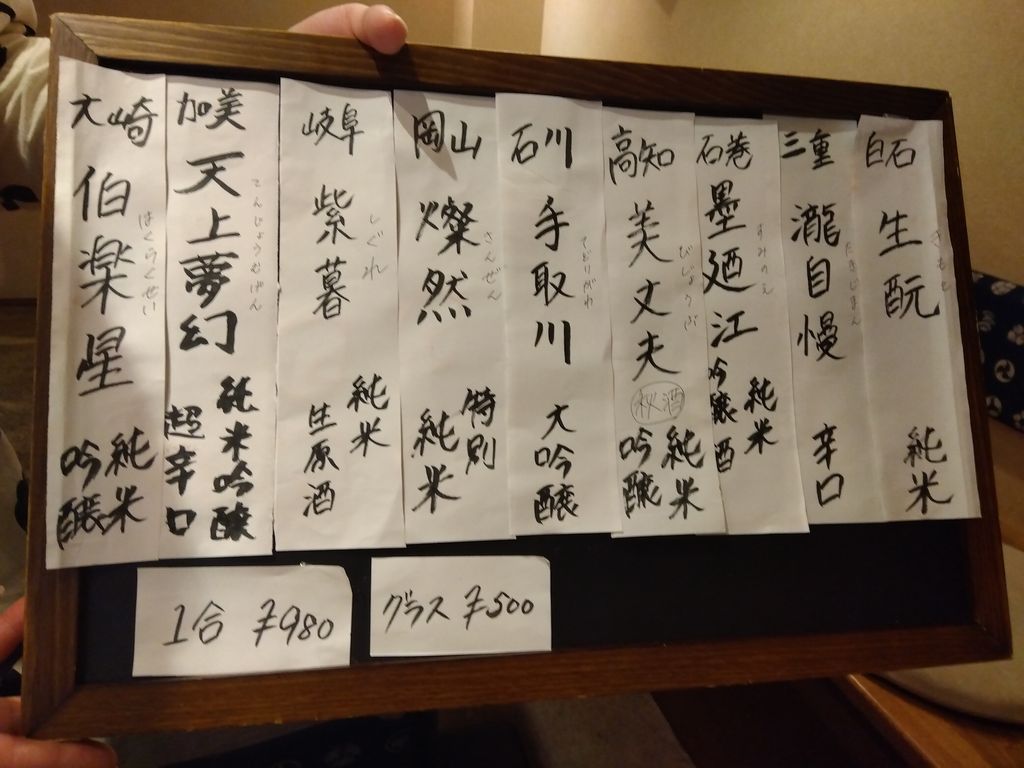 白石
生酛
きもと
純米
三重
瀧自慢
たきじまん
辛口
石巻
墨廼江
すみのえ
純米
吟醸酒
高知
美丈夫
びじょうぶ
秋酒
純米
吟醸
石川
手取川
てどりがわ
大吟醸
岡山
燦然
さんぜん
特別
純米
岐阜
紫暮
しぐれ
純米
生原酒
加美
天上夢幻
てんじょうむげん
純米吟醸
超辛口
大崎
伯楽星
はくらくせい
純米
吟醸
1合 ¥980
グラス ¥500